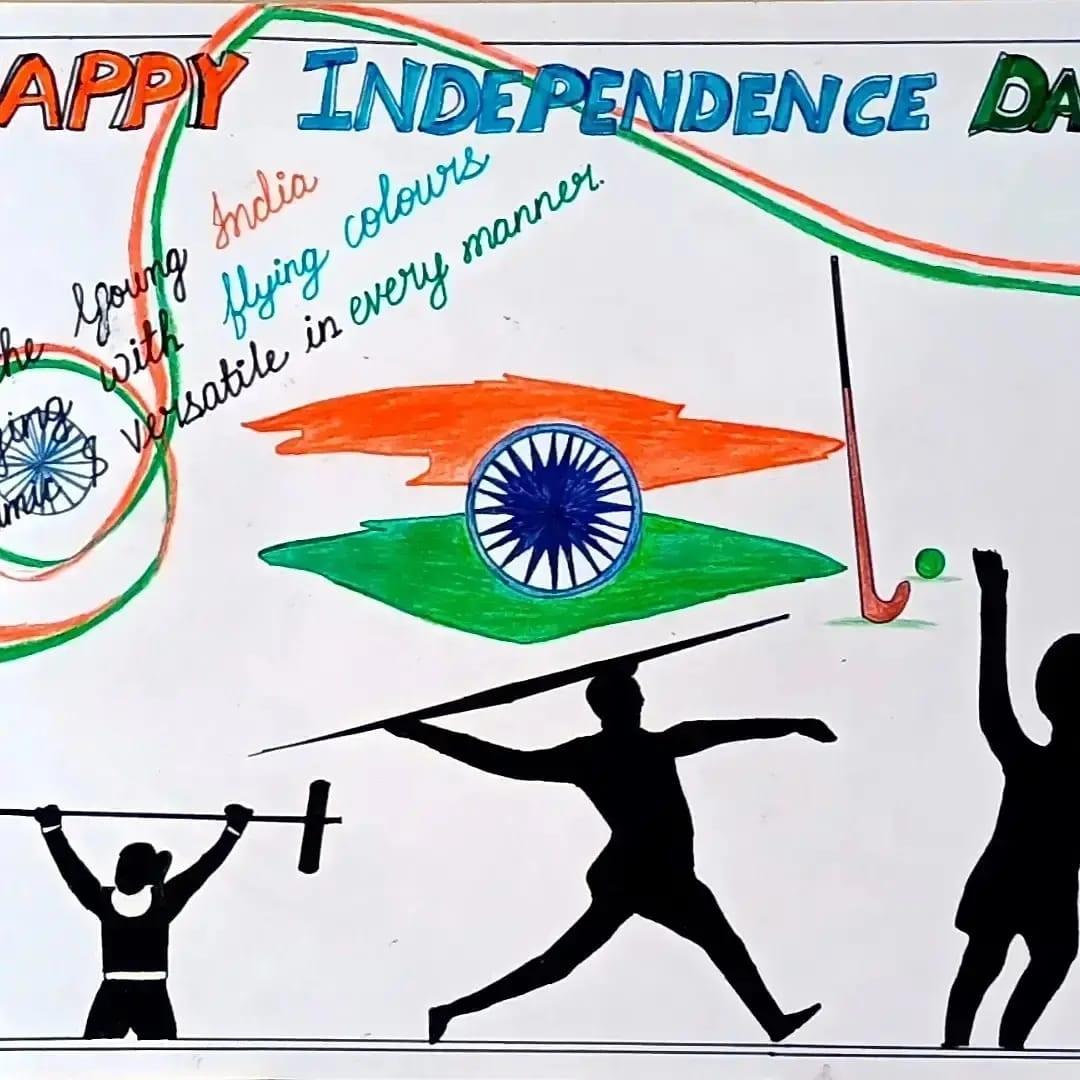 APPY INDEPENDENCE DA
he Young India
ging with flying colours
amic & versatile in every manner.